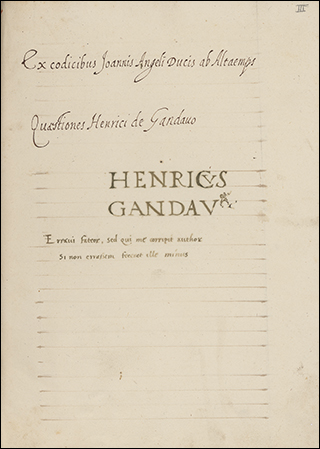 III
Ex codicibus Joannis Angeli Ducis ab Altaemps
Quæstiones Henrici de Gandavo
HENRICVS
GANDAV
Erraui fateor, sed qui me corripit author
Si non errassem fuerat ille minus